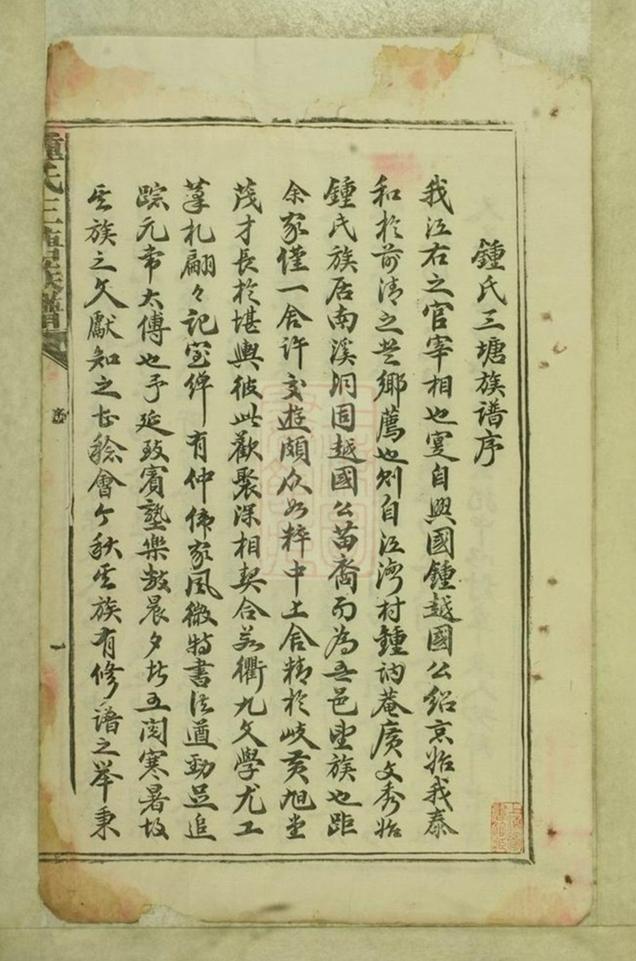 鍾氏三塘族谱序
我江右之官宰相也寔自興國鍾越國公绍京始我泰
和於前清之登鄉薦也则自江湾村鍾訥菴廣文秀始
鍾氏族居南溪洞固越國公苗裔而為吾邑望族也距
余家僅一舍许交遊頗众如粹中上舍精於岐黄旭堂
茂才長於堪輿彼此歡聚深相契合若衢九文學尤工
筆札翩々记室綽有仲偉家風微特書法遒勁足追
踪元常太傅也予延致賓塾樂数晨夕於五阅寒暑故
其族之文獻知之甚稔會今秋其族有修譜之举秉
鍾氏三塘族譜
序
一